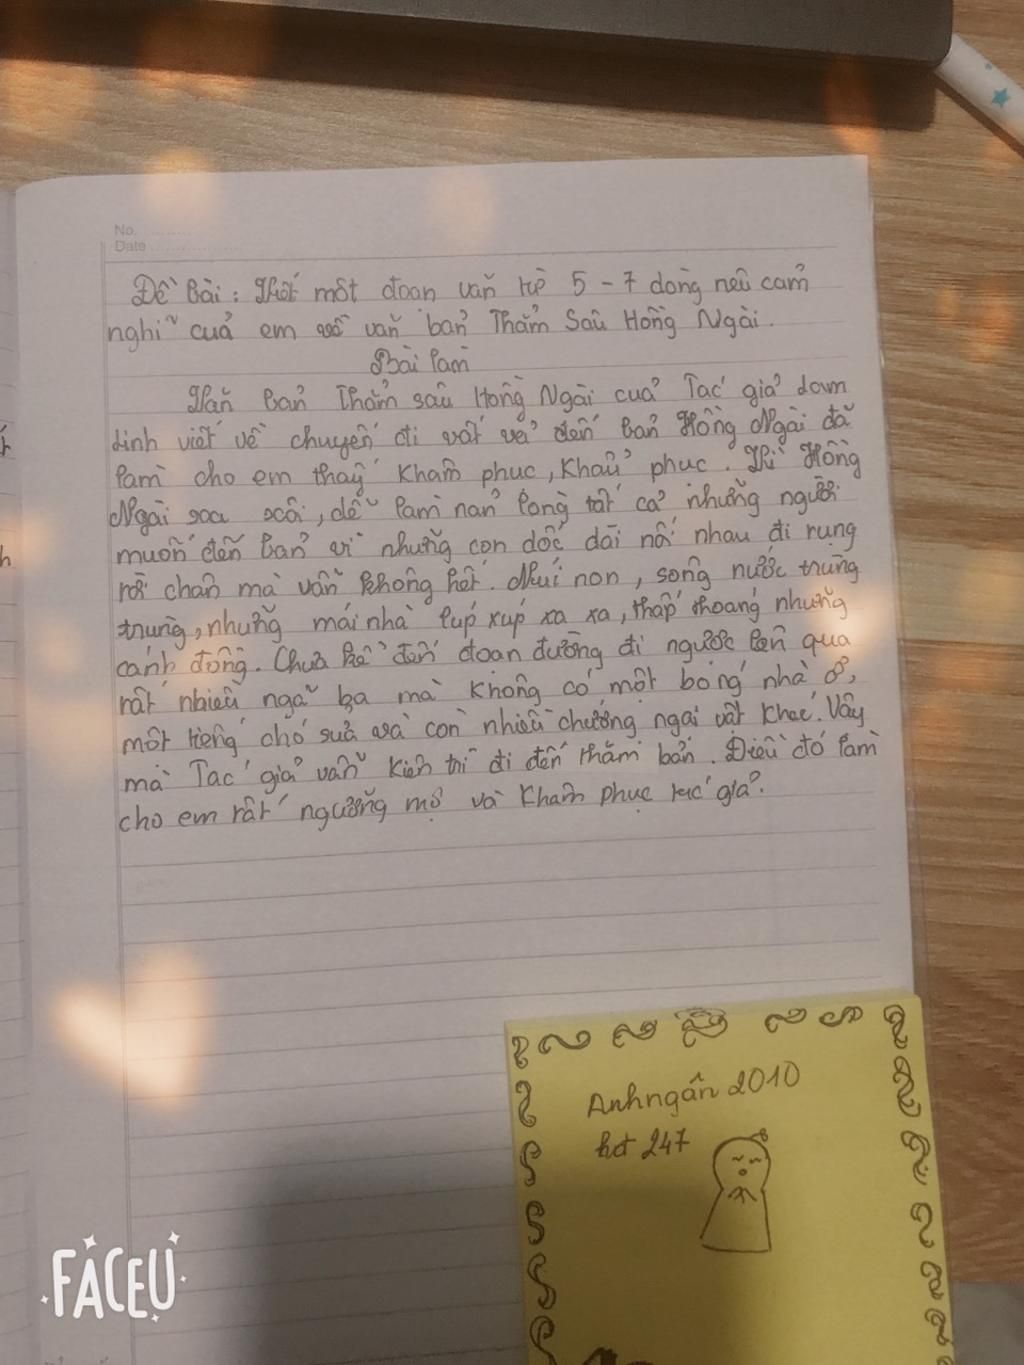 No. ............
Date ..................
Đề Bài: Viết một đoạn văn từ 5 - 7 dòng nêu cảm
nghĩ của em về văn bản Thẳm Sâu Hồng Ngài.
Bài làm
Văn Bản Thẳm sâu Hồng Ngài của Tác giả
viết về chuyến đi vất vả đến bản Hồng Ngài đã
làm cho em thấy Khâm phục, Khẩu phục. Vì Hồng
Ngài xa xôi, dễ làm nản lòng tất cả những người
muốn đến bản vì những con dốc dài nối nhau đi rụng
rời chân mà vẫn không hết. Núi non, sông nước trùng
trùng, những mái nhà lúp xúp xa xa, thấp thoáng những
cánh đồng. Chưa kể đến đoạn đường đi ngược lên qua
rất nhiều ngã ba mà không có một bóng nhà ở,
một tiếng chó sủa và còn nhiều chướng ngại vật khác. Vậy
mà Tác giả vẫn kiên trì đi đến thăm bản. Điều đó làm
cho em rất ngưỡng mộ và Khâm phục tác giả.
Anhngân 2010
hot 247
FACEU